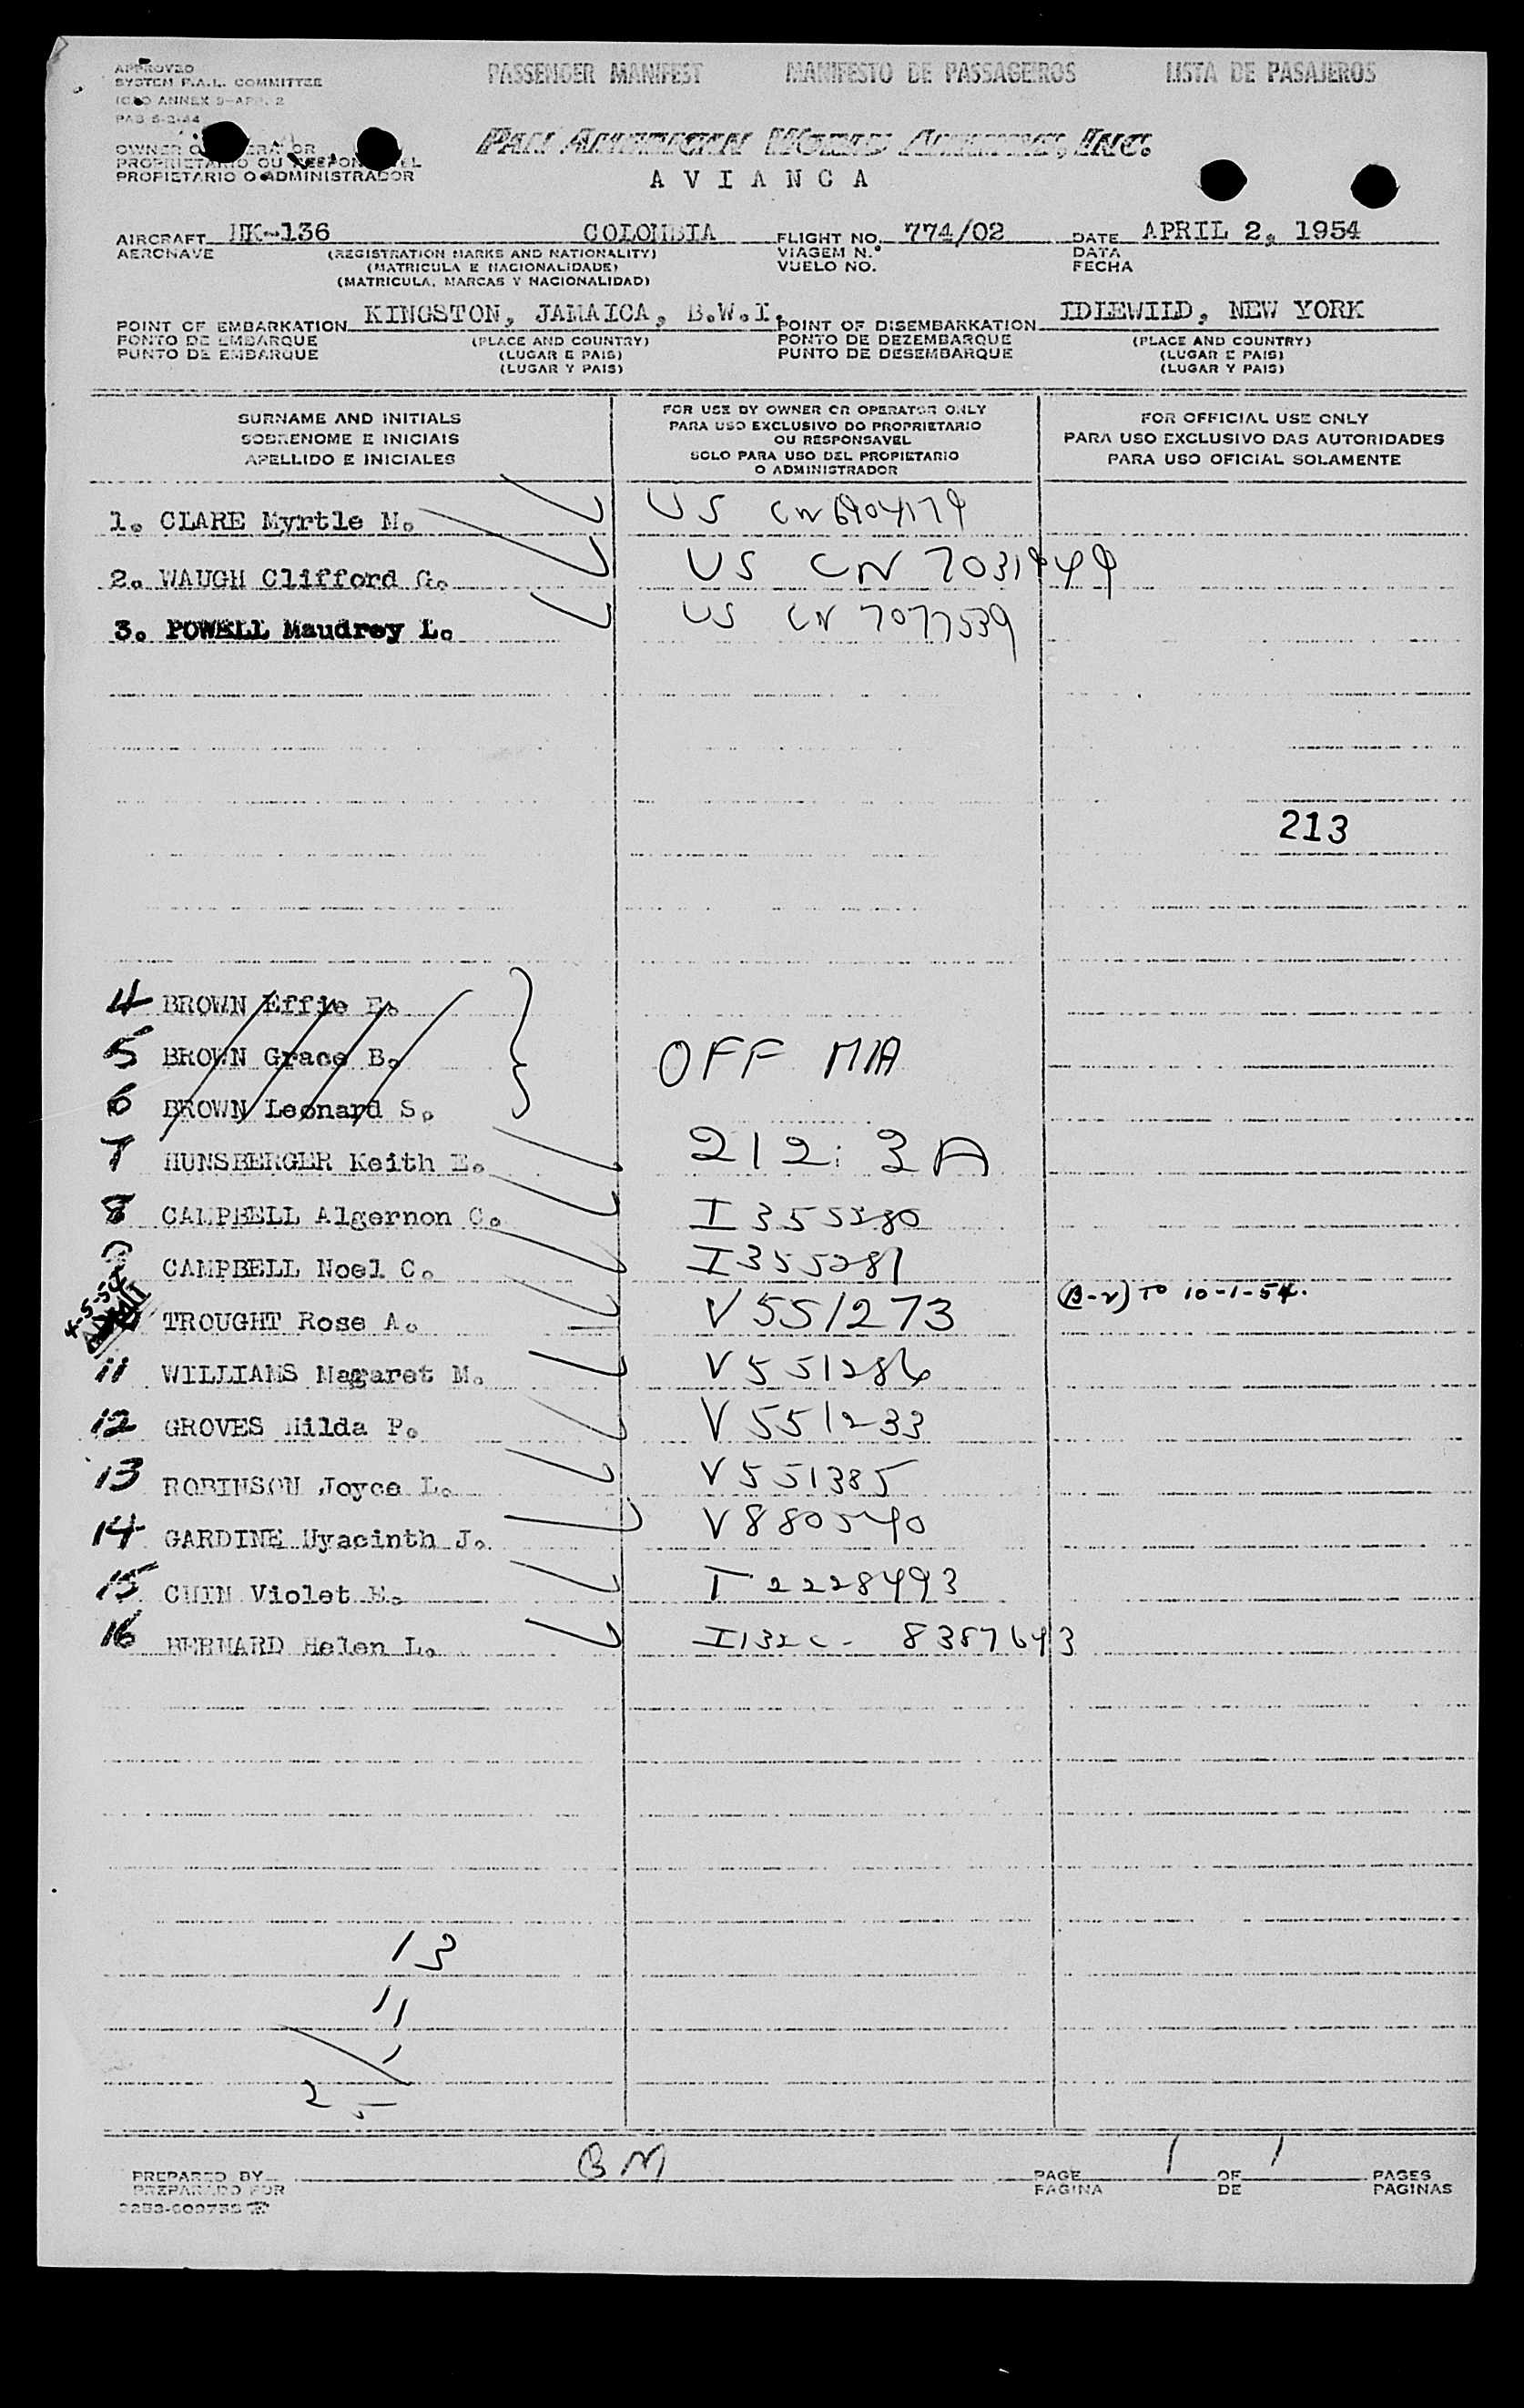 APPROVED
SYSTEM F.A.L. COMMITTEE
ICAO ANNEX 9-APP. 2
PAS 5-2-44
PASSENGER MANIFEST MANIFESTO DE PASSAGEIROS LISTA DE PASAJEROS
OWNER OR OPERATOR
PROPRIETARIO OU RESPONSAVEL
PROPIETARIO O ADMINISTRADOR
PAN AMERICAN WORLD AIRWAYS, INC.
AVIANCA
AIRCRAFT HK-136 COLOMBIA FLIGHT NO. 774/02 DATE APRIL 2, 1954
AERONAVE (REGISTRATION MARKS AND NATIONALITY) VIAGEM N.º DATA
(MATRICULA E NACIONALIDADE) VUELO NO. FECHA
(MATRICULA, MARCAS Y NACIONALIDAD)
POINT OF EMBARKATION KINGSTON, JAMAICA, B.W.I. POINT OF DISEMBARKATION IDLEWILD, NEW YORK
PONTO DE EMBARQUE (PLACE AND COUNTRY) PONTO DE DEZEMBARQUE (PLACE AND COUNTRY)
PUNTO DE EMBARQUE (LUGAR E PAIS) PUNTO DE DESEMBARQUE (LUGAR E PAIS)
(LUGAR Y PAIS) (LUGAR Y PAIS)
SURNAME AND INITIALS
SOBRENOME E INICIAIS
APELLIDO E INICIALES
FOR USE BY OWNER OR OPERATOR ONLY
PARA USO EXCLUSIVO DO PROPRIETARIO
OU RESPONSAVEL
SOLO PARA USO DEL PROPIETARIO
O ADMINISTRADOR
FOR OFFICIAL USE ONLY
PARA USO EXCLUSIVO DAS AUTORIDADES
PARA USO OFICIAL SOLAMENTE
1. CLARE Myrtle M. US CN 6904179
2. WAUGH Clifford G. US CN
3. POWELL Maudrey L. US CN 7077539
213
4 BROWN Effie E.
5 BROWN Grace B. OFF MIA
6 BROWN Leonard S.
7 HUNSBERGER Keith E. 212: 3A
8 CAMPBELL Algernon C. I 355280
9 CAMPBELL Noel C. I355281
4-5-54 TROUGHT Rose A. V 551273 (B-2) TO 10-1-54.
11 WILLIAMS Magaret M. V 551286
12 GROVES Hilda P. V 551233
13 ROBINSON Joyce L. V 551385
14 GARDINE Hyacinth J. V 880540
15 CHIN Violet E. T 2228493
16 BERNARD Helen L. I132C- 8387643
13
11
1
25
PREPARED BY BM PAGE 1 OF 1 PAGES
PREPARADO POR PAGINA DE PAGINAS